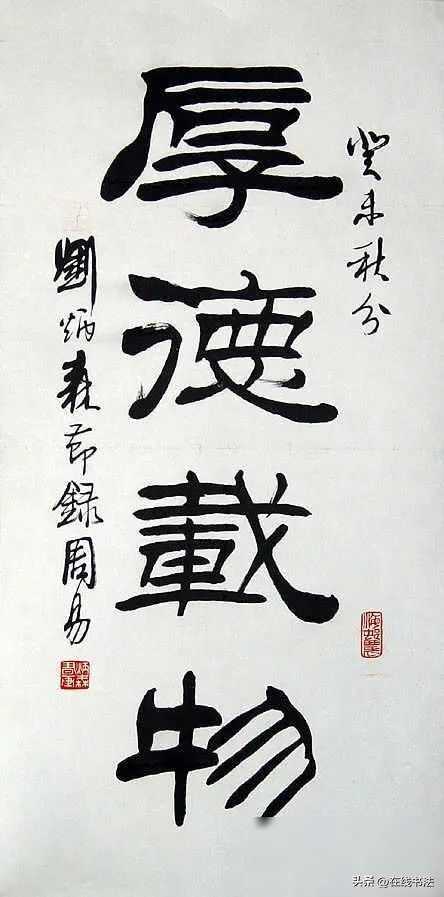 癸未秋分
厚德載物
劉炳森節録周易
炳森書画
头条 @在线书法